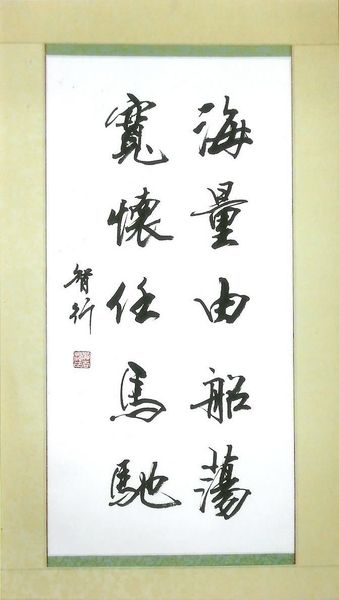 海量由船蕩
寬懷任馬馳
智行